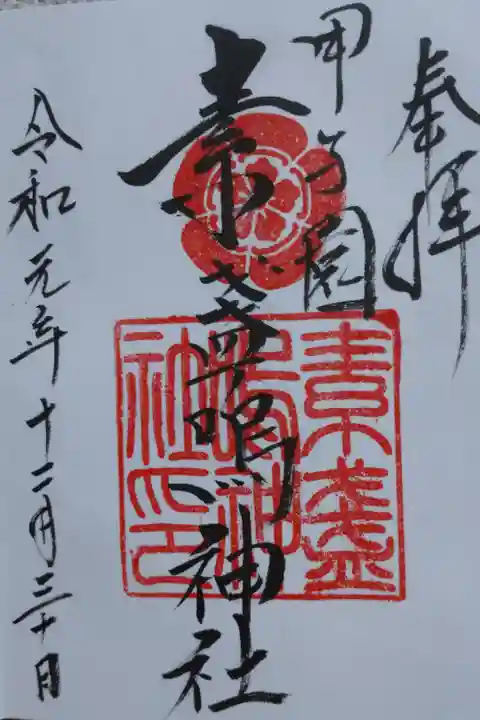 奉拝
甲子園
素盞嗚神社
素盞
嗚神
社印
令和元年十二月三十日